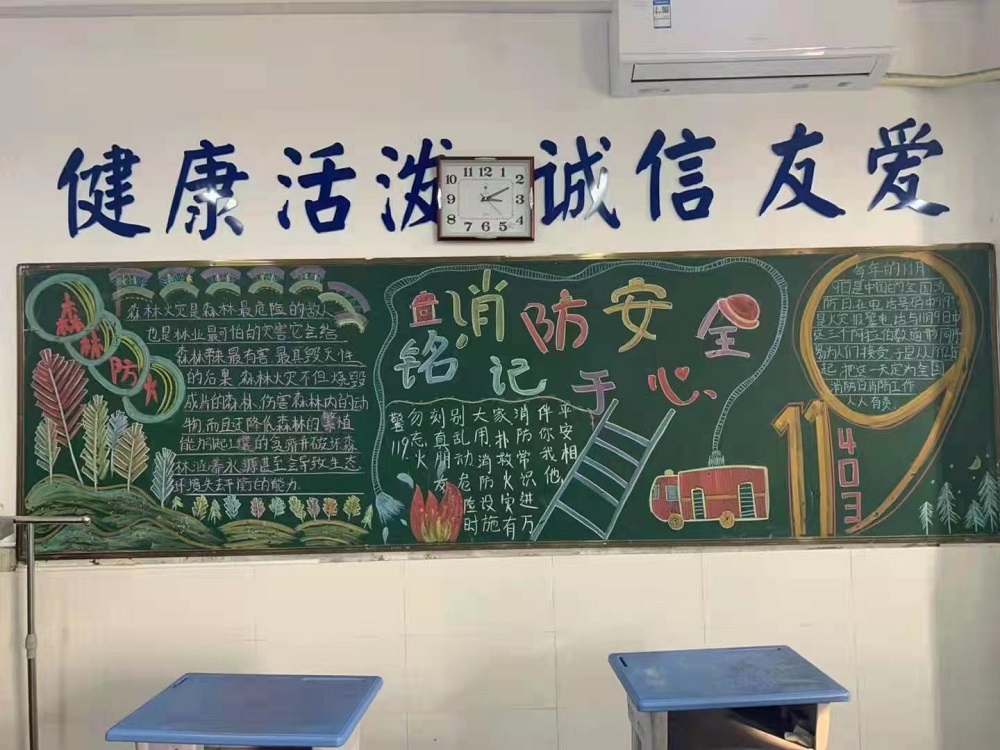 健康活泼 诚信友爱
11 12 1
10 2
9 3
8 4
7 6 5
森林防火
森林火灾是森林最危险的敌人
也是林业最可怕的灾害它会给
森林带来最有害最具毁灭性
的后果 森林火灾不但烧毁
成片的森林、伤害森林内的动
物,而且还降低森林的繁殖
能力引起土壤的贫瘠并破坏森
林涵养水源甚至会导致生态
环境失去平衡的能力.
消防安全
铭记于心
平安相
伴你我他
消防常识进万
家扑救火灾有
大用消防设施
别乱动危险时
刻朋友
勿忘火
警119.
每年的11月
9日是中国的全国消
防日电话号中的119
是火灾报警电话与11月9日中
这三个阿拉伯数相同
易为人们接受,于是从
起,把这一天定为全国
消防日消防工作
人人有责。
119
403